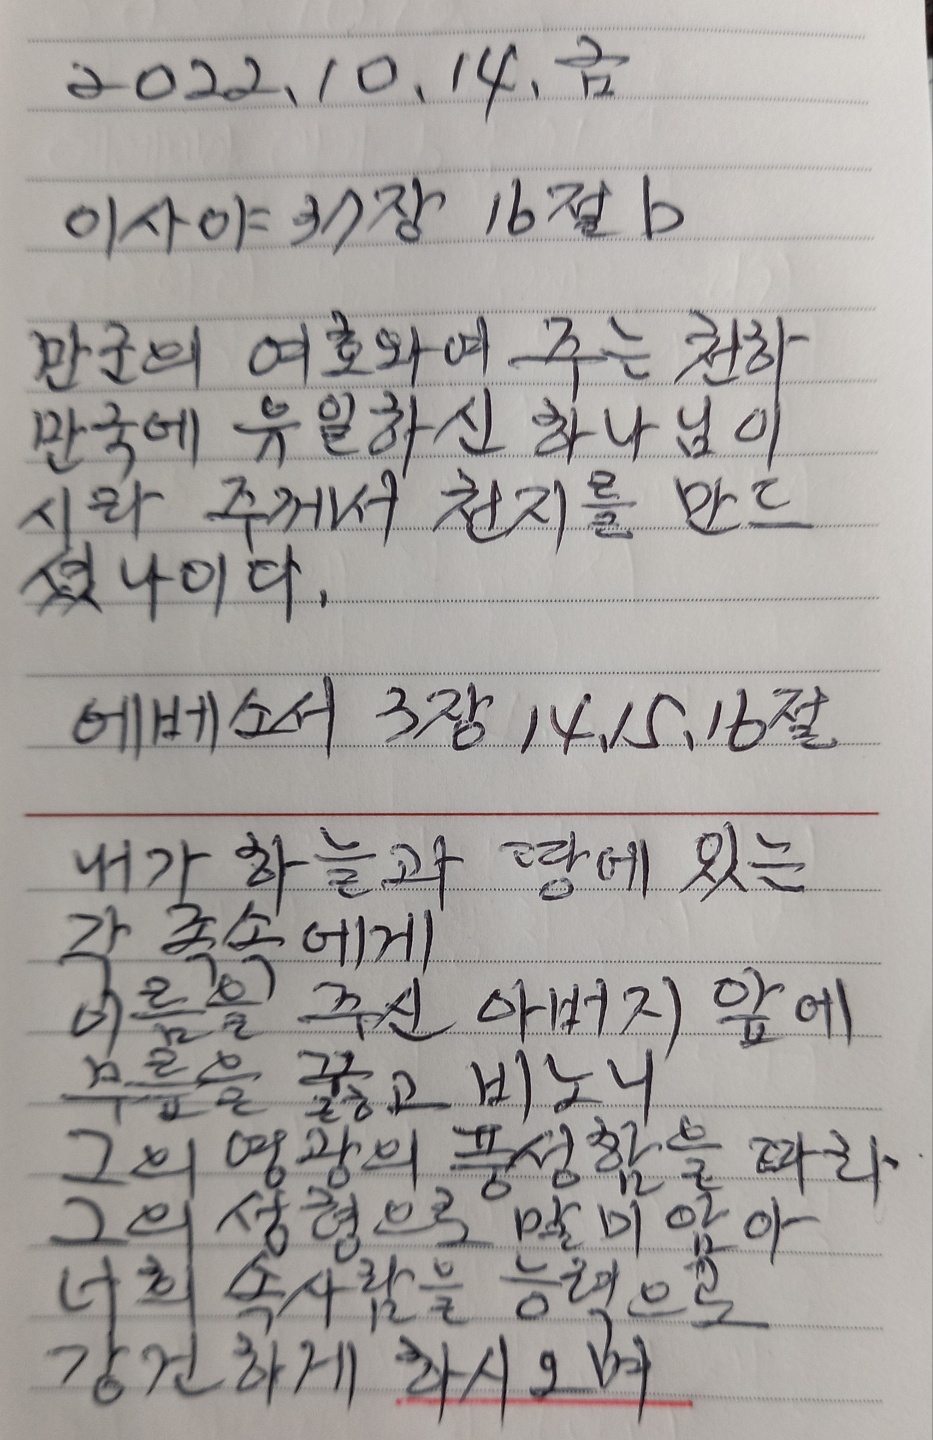 2022.10.14.금
이사야 37장 16절 b
만군의 여호와여 주는 천하
만국에 유일하신 하나님이
시라 주께서 천지를 만드
셨나이다.
에베소서 3장 14.15.16절
내가 하늘과 땅에 있는
각 족속에게
이름을 주신 아버지 앞에
무릎을 꿇고 비노니
그의 영광의 풍성함을 따라
그의 성령으로 말미암아
너희 속사람을 능력으로
강건하게 하시오며